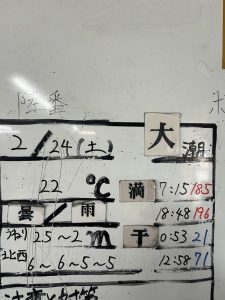 陸番
2/24(土) 大潮
22 ℃ 満 7:15 185
曇/雨 18:48 196
うねり 2.5~2m 干 0:53 21
北西 6~6~5~5 12:58 71